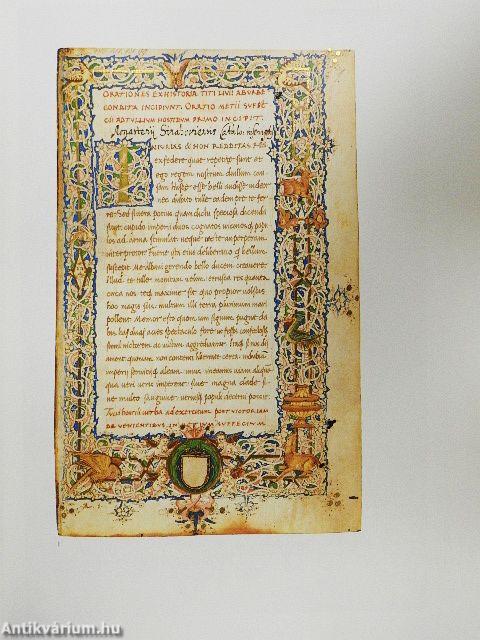 ORATIONES EX HISTORIA TITI LIVII AB URBE
CONDITA INCIPIUNT. ORATIO METII SUFFE
CII AD TULLIUM HOSTILIUM PRIMO INCIPIT.
Monasterij
INIURIAS & NON REDDITAS RES
ex federe quae repetitę sunt et
ego regem nostrum cluilium cau
sam huiusce esse belli audisse videor
nec dubito tulle eadem pre te fer
re. Sed si vera potius quam dictu speciosa dicenda
sunt cupido imperii duos cognatos vicinosque popu
los ad arma stimulat neque recte an perperam
interpretor. Fuerit ista eius deliberatio qui bellum
suscepit. Me albani gerendo bello ducem creavere.
Illud te tulle monitum velim. etrusca res quanta
circa nos teque maxime sit quo propior
hoc magis scis. multum illi terra plurimum mari
pollent. Memor esto quom iam signum pugne da
bis. has duas acies spectaculo fore
simul victorem ac victum aggrediantur. Itaque si nos dii
ament quoniam non contenti libertate certa
imperii servitiique aleam imus. ineamus viam aliqua
qua utri utris imperent sine magna clade si
ne multo sanguine utriusque populi decerni possit.
verba ad exercitum post victoriam
Antikvárium.hu